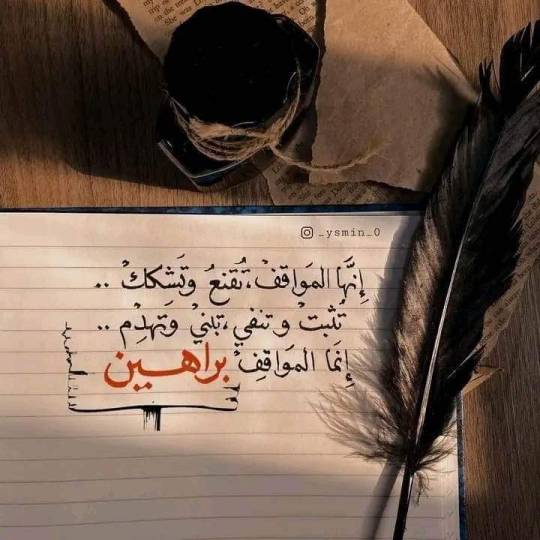 _ysmin_0
إِنَّهَا المَوَاقف،تُقنعُ وتَشكك ..
تُثبتْ و تنفي،تبني وتهدِم ..
إِنمَا المَواقِف براهين